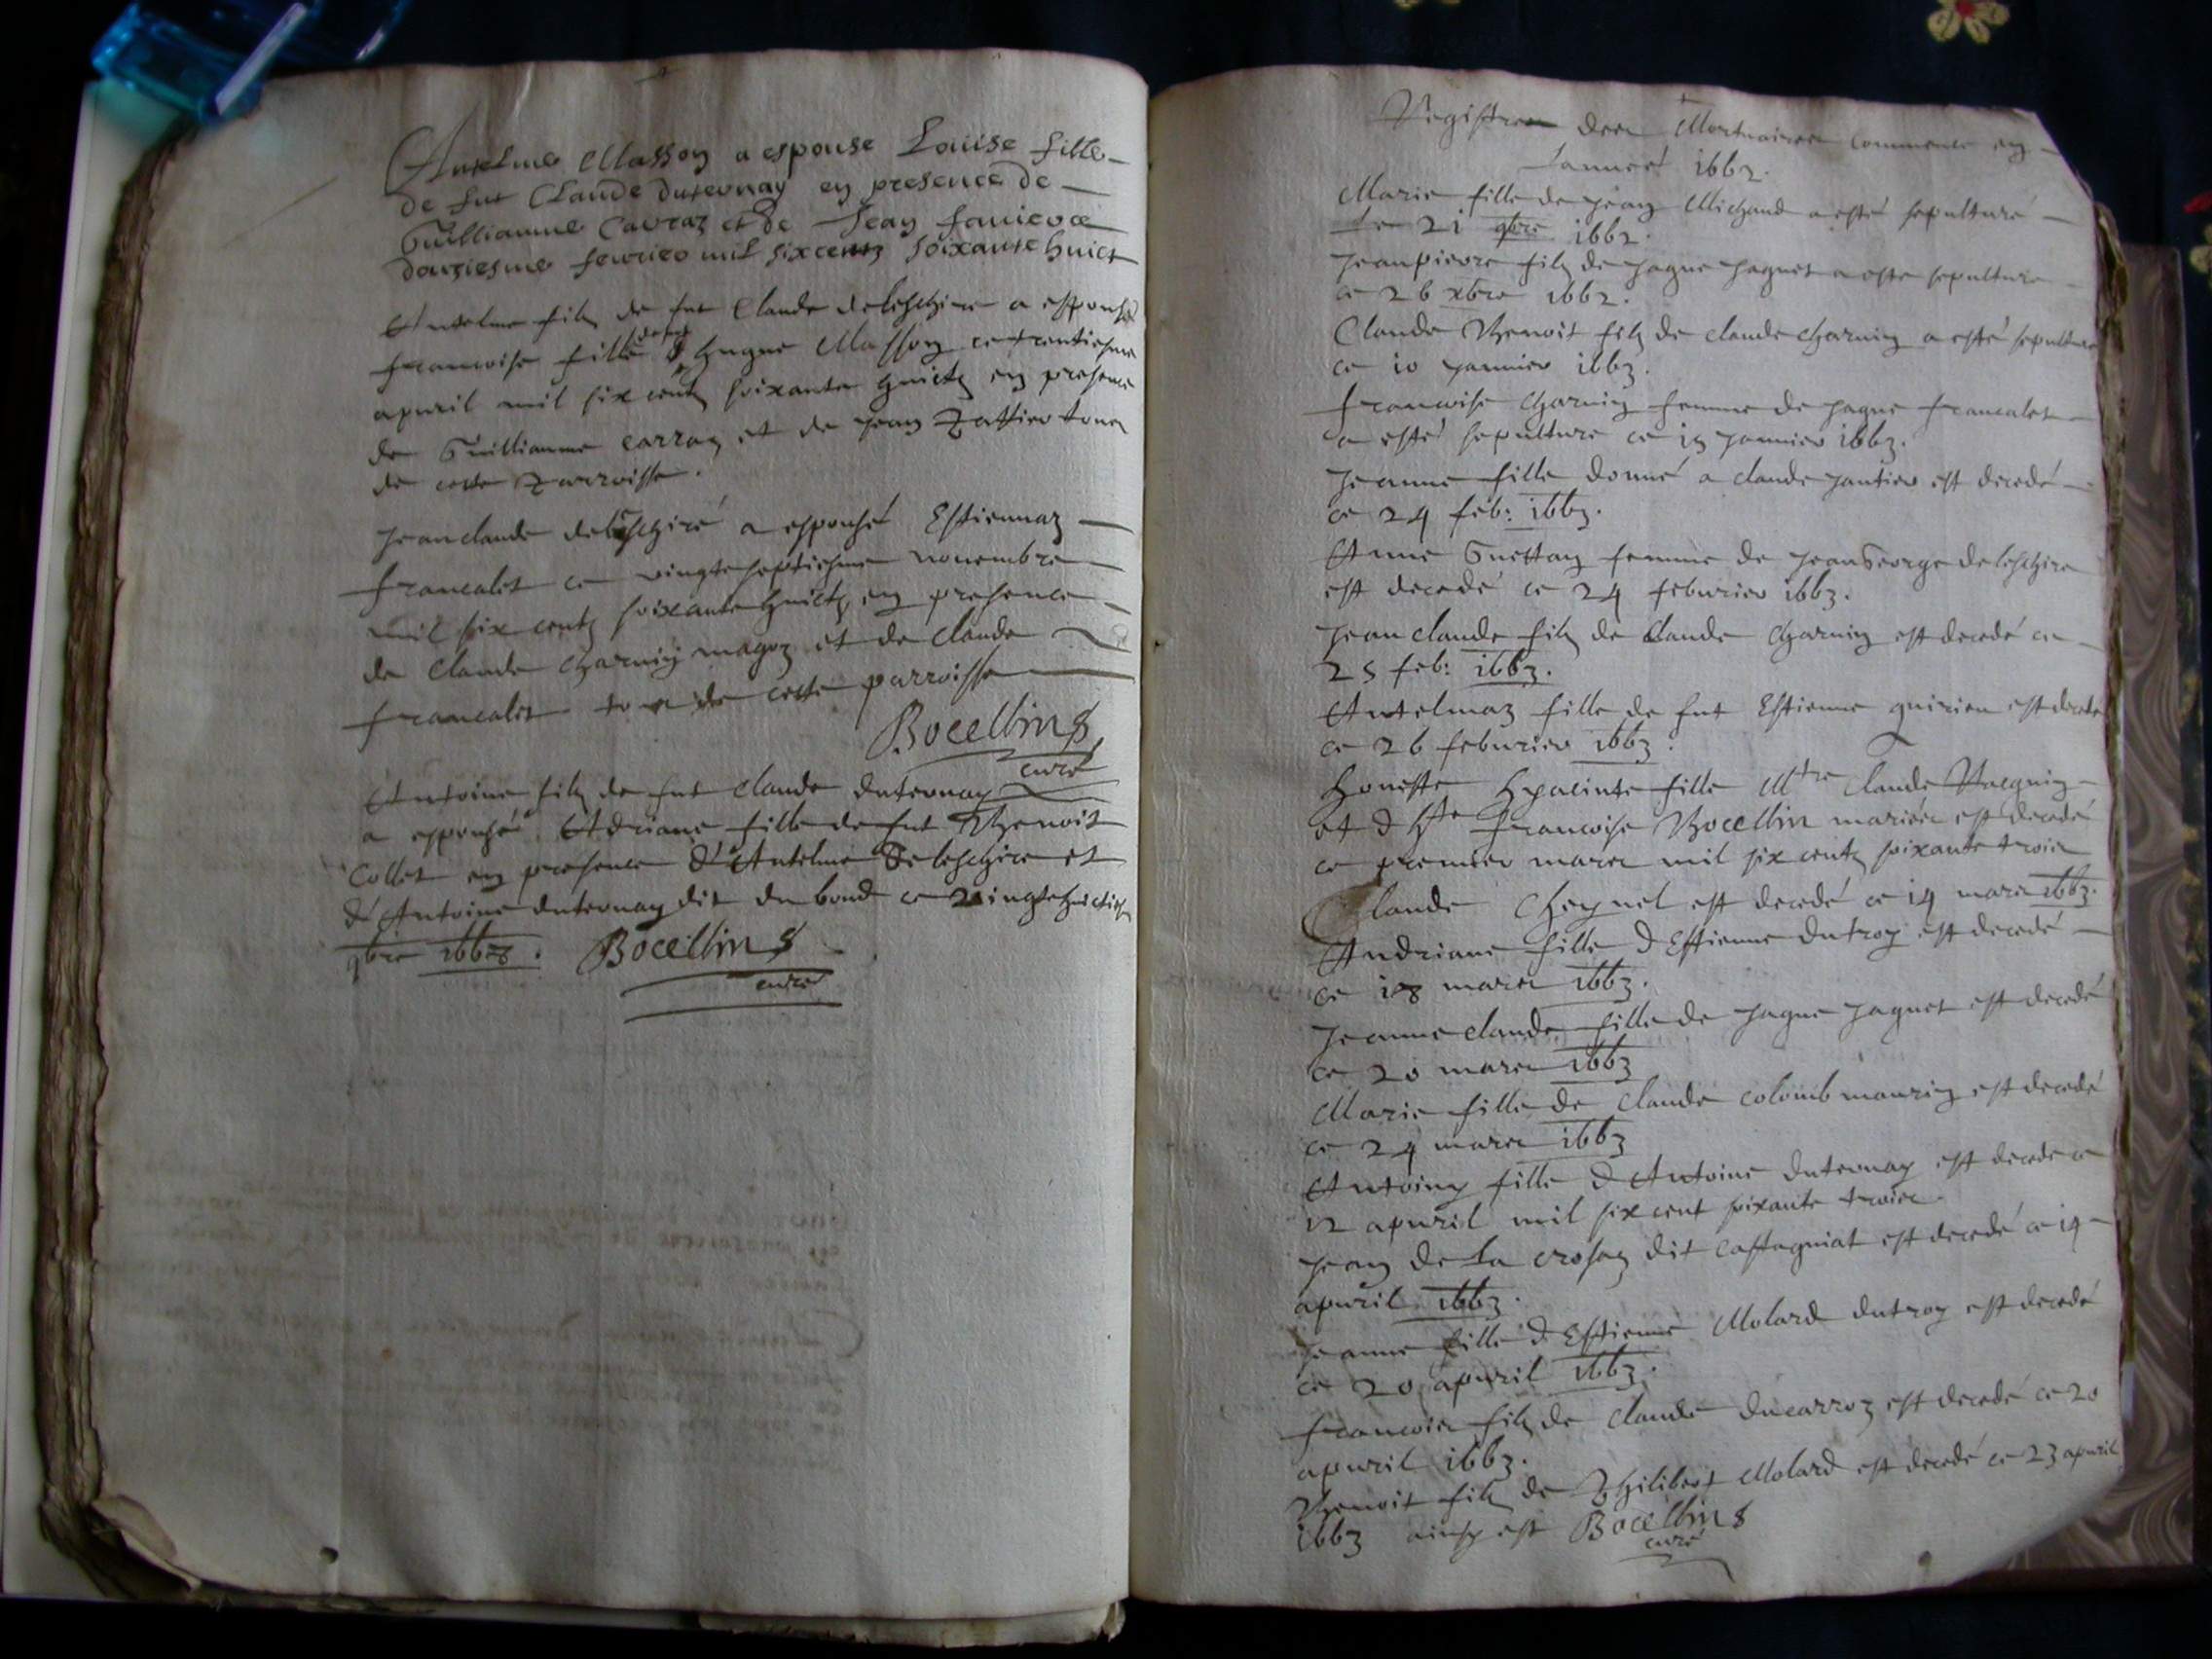 Antelme Masson a espouse Louise fille
de fut Claude dutervnay en presence de
Guillianme Carraz et de Jean
douziesme feuvrier mil six centz soixante huict
Antelme filz de fut Claude deleschire a espousé
francoise fille de fut Hugue Masson ce trentiesme
apuril mil six centz soixante huictz en presence
de Guillianme Carraz et de Jean tous
de cette Parroisse.
Jean claude deleschire a espousé Estiennaz
francalet ce vingtseptiesme novembre
mil six centz soixante huictz en presence
de Claude Charnin magoz et de Claude
francalet tous de cette parroisse
Bocellin
curé
Antoine filz de fut Claude dutervnay
a espousé Adriane fille de fut Benoit
Collet en presence d'Antelme deleschire et
d'Antoine dutervnay dit du bond ce vingthuictie
9bre 1668. Bocellin
curé
Registre des Mortuaires commence en
Lannee 1662.
Marie fille de Jean Michaud a esté sepulturé
le 21 9bre 1662.
Jeanpierre filz de Jaque Jaquet a este sepulture
ce 26 xbre 1662.
Claude Benoit filz de claude charnin a esté sepulture
ce 10 Janvier 1663.
francoise charnin femme de Jaque francalet
a esté sepulture ce 15 Janvier 1663.
Jeanne fille donné a claude Jantier est decedé
ce 24 feb: 1663.
Anne Guettaz femme de Jean George deleschire
est decedé ce 24 feburier 1663.
Jean claude filz de Claude Charnin est decedé ce
25 feb: 1663.
Antelmaz fille de fut Estienne quirion est decede
ce 26 feburier 1663.
Honeste Hyacinte fille Mtre Claude
et d'Hte Francoise Bocellin mariés est decedé
ce premier mars mil six centz soixante trois
Claude Cheynel est decedé ce 14 mars 1663.
Andriane fille d'Estienne dutroy est decedé
ce 18 mars 1663.
Jeanne claude fille de Jaque Jaquet est decedé
ce 20 mars 1663
Marie fille de Claude colomb maurin est decedé
ce 24 mars 1663
Antoiny fille d'Antoine dutervnay est decede ce
12 apuril mil six cent soixante trois.
Jean de la crosaz dit castagniat est decedé ce 14
apuril 1663.
Jeanne fille d'Estienne Molard dutroy est decedé
ce 20 apuril 1663.
francois filz de Claude ducarroz est decedé ce 20
apuril 1663.
Benoit filz de Philibert Molard est decedé ce 23 apuril
1663 ainsy est Bocellin
curé